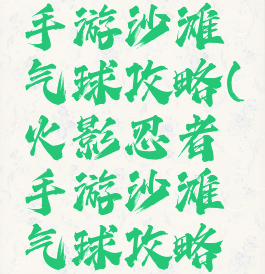 手游沙滩
气球攻略(
火影忍者
手游沙滩
气球攻略